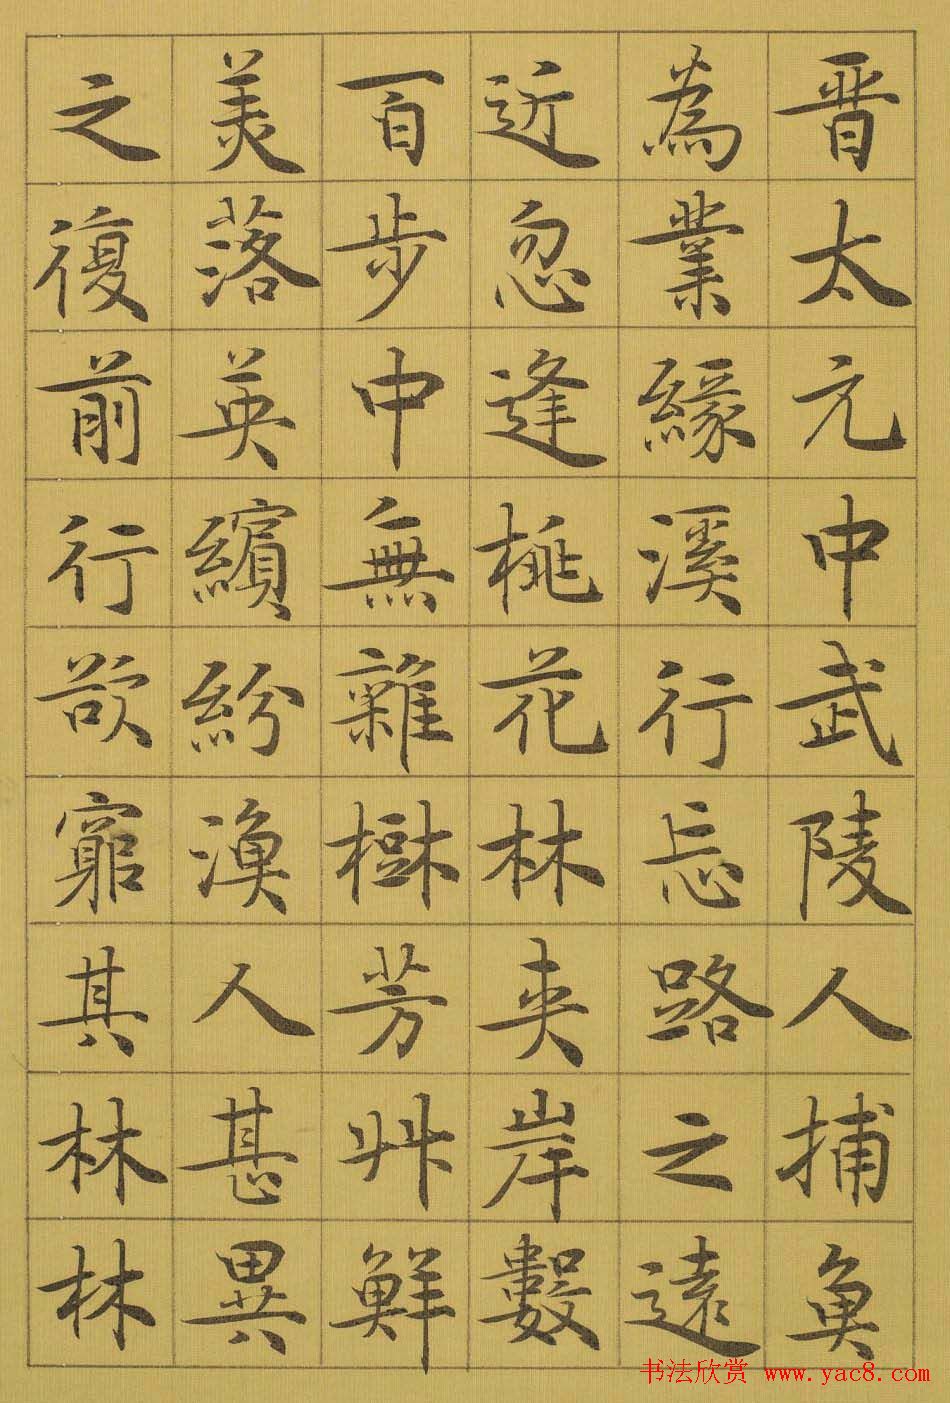 晋太元中武陵人捕魚
為業緣溪行忘路之遠
近忽逢桃花林夾岸數
百步中無雜樹芳艸鮮
美落英繽紛漁人甚異
之復前行欲窮其林林
书法欣赏 www.yac8.com